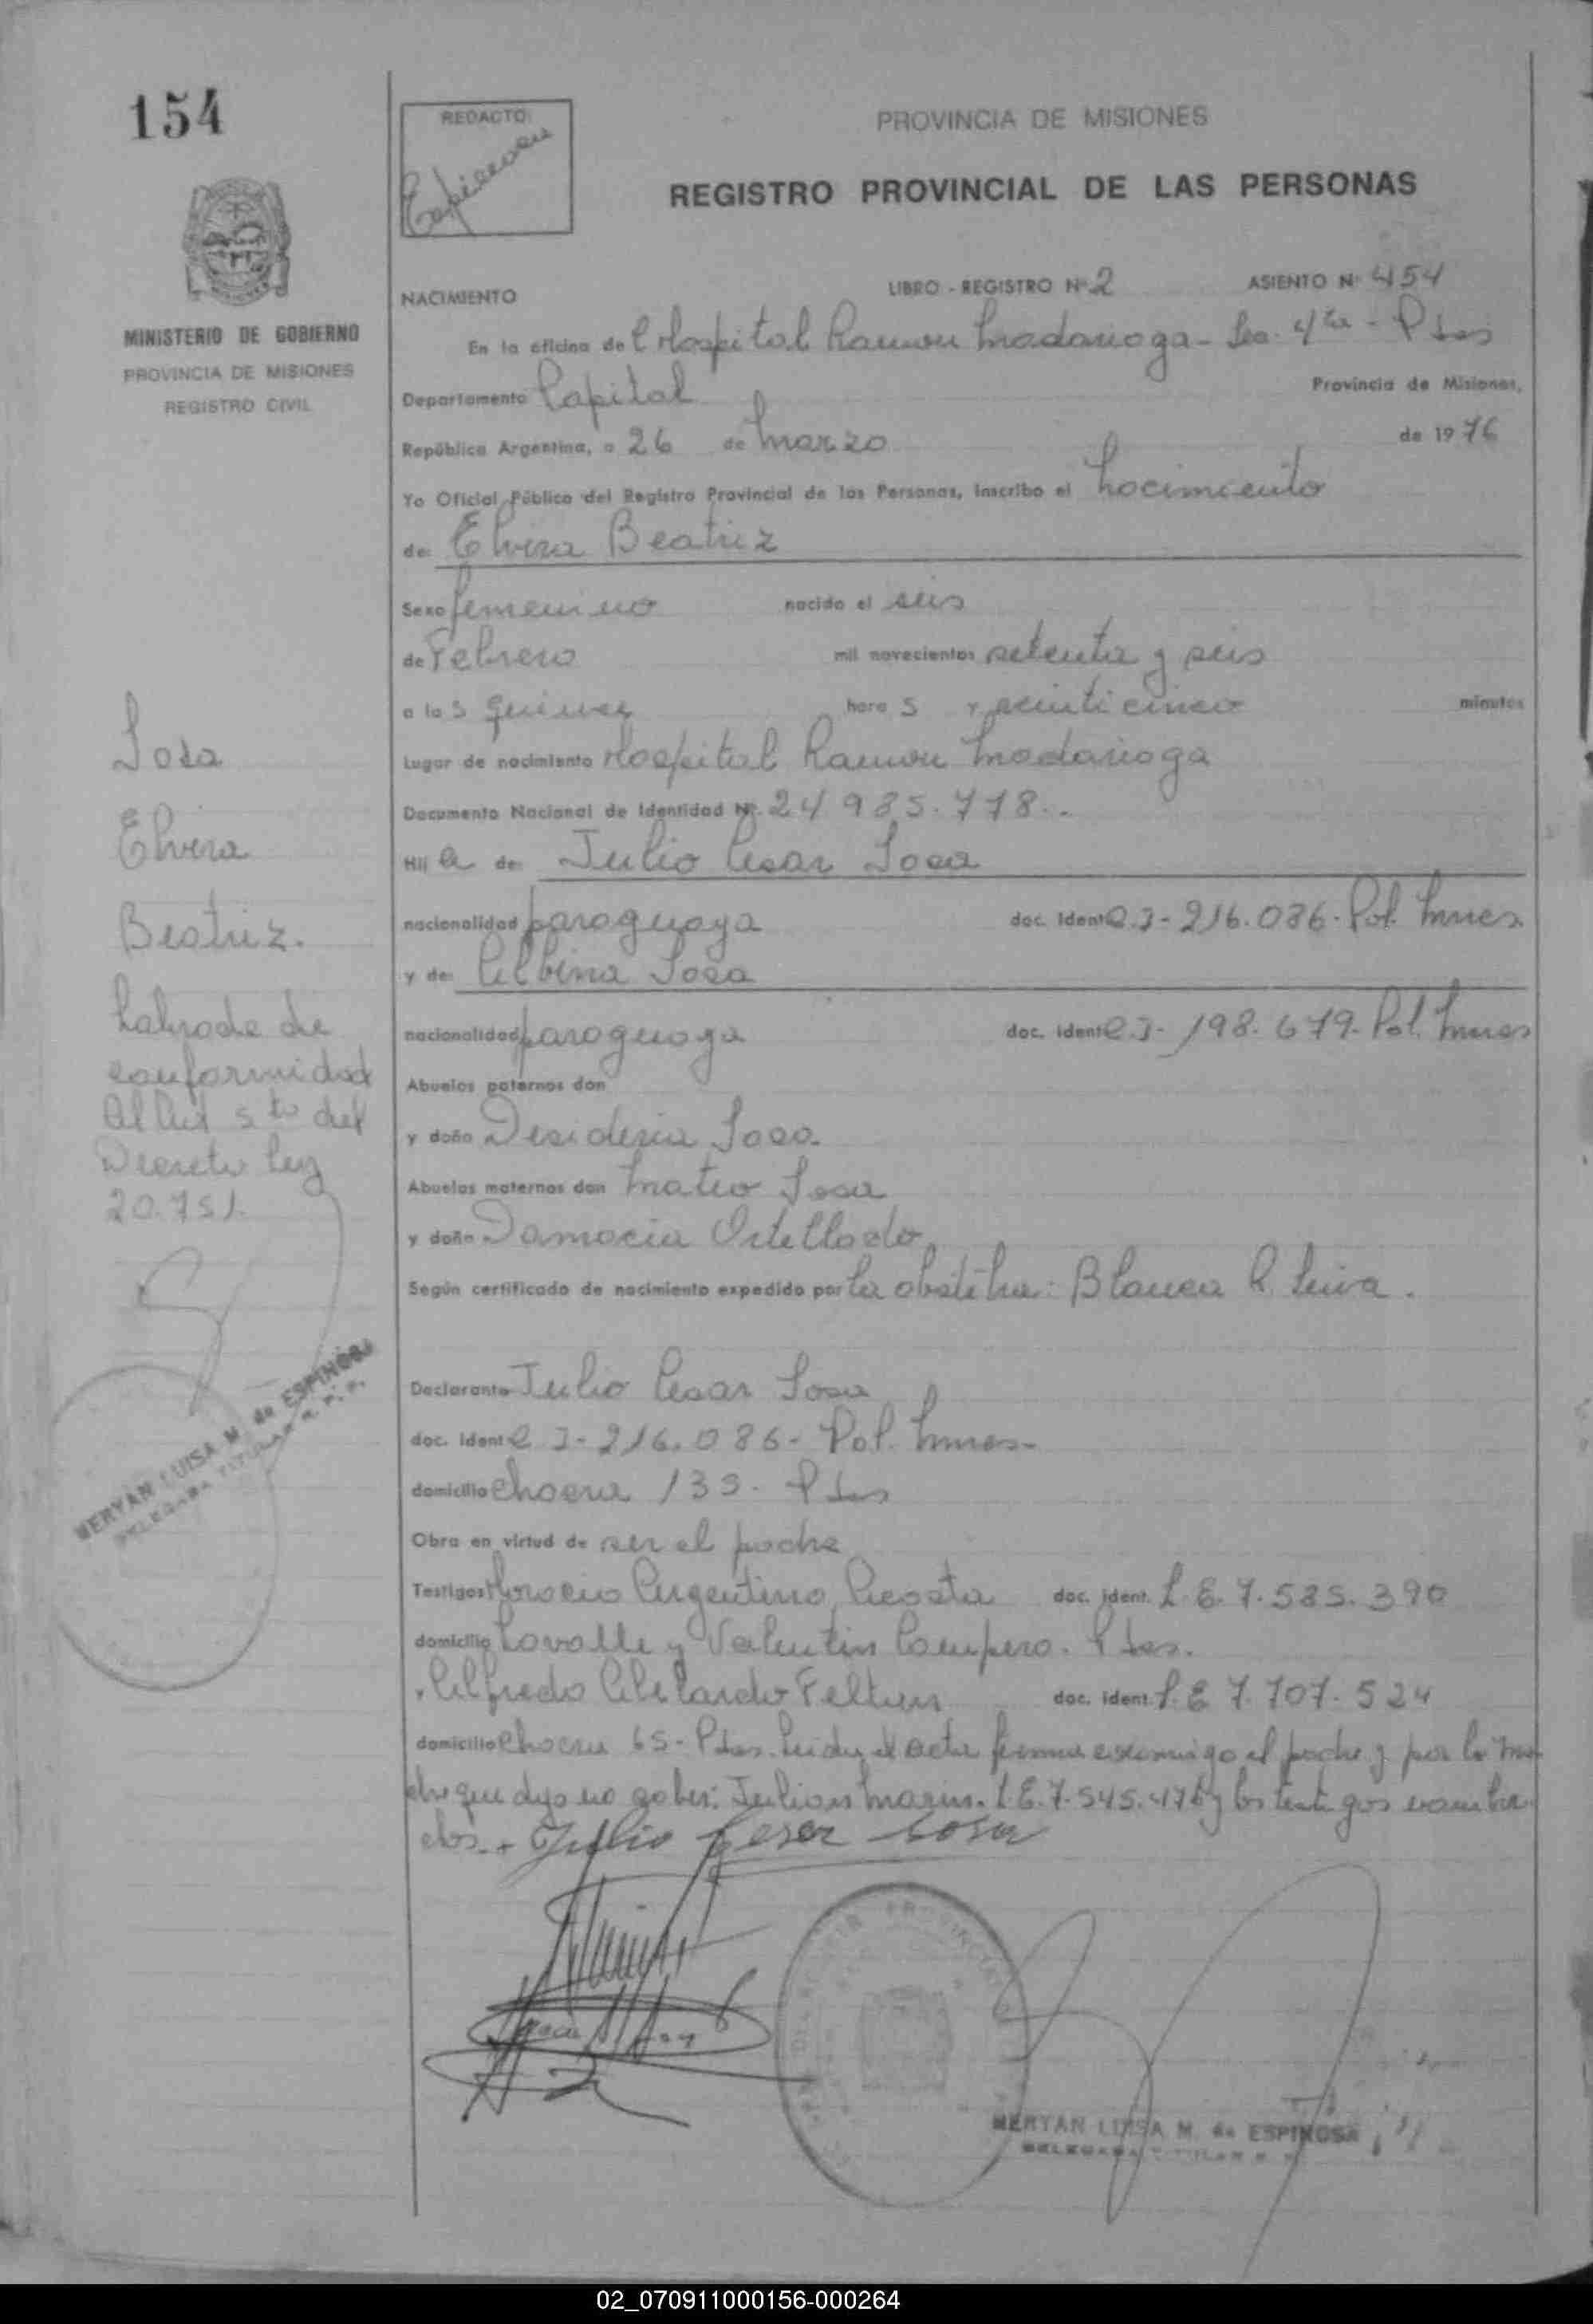 154
REDACTO:
Espinosa
PROVINCIA DE MISIONES
REGISTRO PROVINCIAL DE LAS PERSONAS
MINISTERIO DE GOBIERNO
PROVINCIA DE MISIONES
REGISTRO CIVIL
NACIMIENTO
LIBRO - REGISTRO Nº 2
ASIENTO Nº 454
En la oficina del Hospital Ramon Madariaga - Sec. 4ta - Pdas
Departamento Capital Provincia de Misiones,
República Argentina, a 26 de Marzo de 1976
Yo Oficial Público del Registro Provincial de las Personas, inscribo el Nacimiento
de: Elvira Beatriz
Sexo femenino nacido el seis
de Febrero mil novecientos setenta y seis
a las quince horas y veinticinco minutos
Lugar de nacimiento Hospital Ramon Madariaga
Documento Nacional de Identidad Nº 24 985.778.-
Hija de: Julio Cesar Sosa
nacionalidad paraguaya doc. Ident. C.I- 216.086- Pol. Mnes
y de: Albina Sosa
nacionalidad paraguaya doc. ident. C.I- 198.679- Pol. Mnes
Abuelos paternos don
y doña Desideria Sosa
Abuelos maternos don Mateo Sosa
y doña Damacia Ortellado
Según certificado de nacimiento expedido por la obstétra: Blanca R. Leiva.
Declarante Julio Cesar Sosa
doc. ident C I- 216.086- Pol. Mnes-
domicilio Chacra 133- Pdas
Obra en virtud de ser el padre
Testigos Horacio Argentino Acosta doc. ident. L.E. 7.585.390
domicilio Lavalle y Valentin Campero. Pdas.
y Alfredo Abelardo doc. ident. L.E 7.707.524
domicilio Chacra 65- Pdas. Leida el acta firma conmigo el padre y por la ma
dre que dijo no saber: Julian Marin. L.E. 7.545.476 y los testigos nombra
dos.- Julio Cesar Sosa
Sosa
Elvira
Beatriz.
Labrada de
conformidad
al Art 5to del
Decreto Ley
20.751.
MERYAN LUISA M. de ESPINOSA
DELEGADA TITULAR R. P. P.
MERYAN LUISA M. de ESPINOSA
DELEGADA TITULAR R. P. P.
02_070911000156-000264